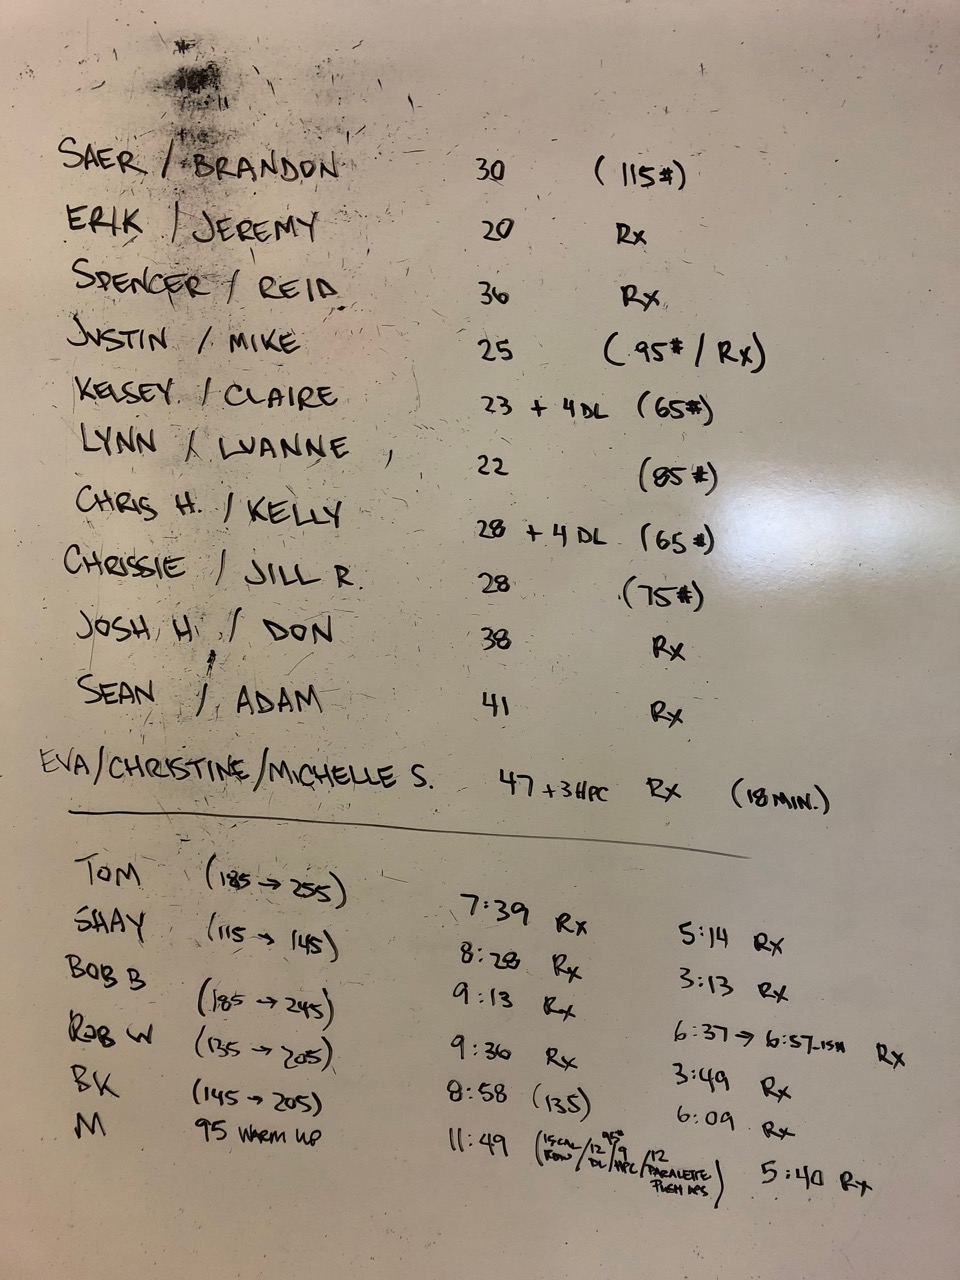 SAER / BRANDON 30 (115#)
ERIK / JEREMY 20 Rx
SPENCER / REID 36 Rx
JUSTIN / MIKE 25 (95# / Rx)
KELSEY / CLAIRE 23 + 4 DL (65#)
LYNN / LUANNE 22 (85#)
CHRIS H. / KELLY 28 + 4 DL (65#)
CHRISSIE / JILL R. 28 (75#)
JOSH H. / DON 38 Rx
SEAN / ADAM 41 Rx
EVA/CHRISTINE/MICHELLE S. 47 + 3 HPC Rx (18 MIN.)
TOM (185 → 255) 7:39 Rx 5:14 Rx
SHAY (115 → 145) 8:28 Rx 3:13 Rx
BOB B (185 → 245) 9:13 Rx 6:37 → 6:57 Rx
ROB W (135 → 205) 9:36 Rx 3:49 Rx
BK (145 → 205) 8:58 (135) 6:09 Rx
M 95 WARM UP 11:49 (15 CAL ROW / 12 DL / 95# 9 HPC / 12 PARALETTE PUSH UPS) 5:40 Rx